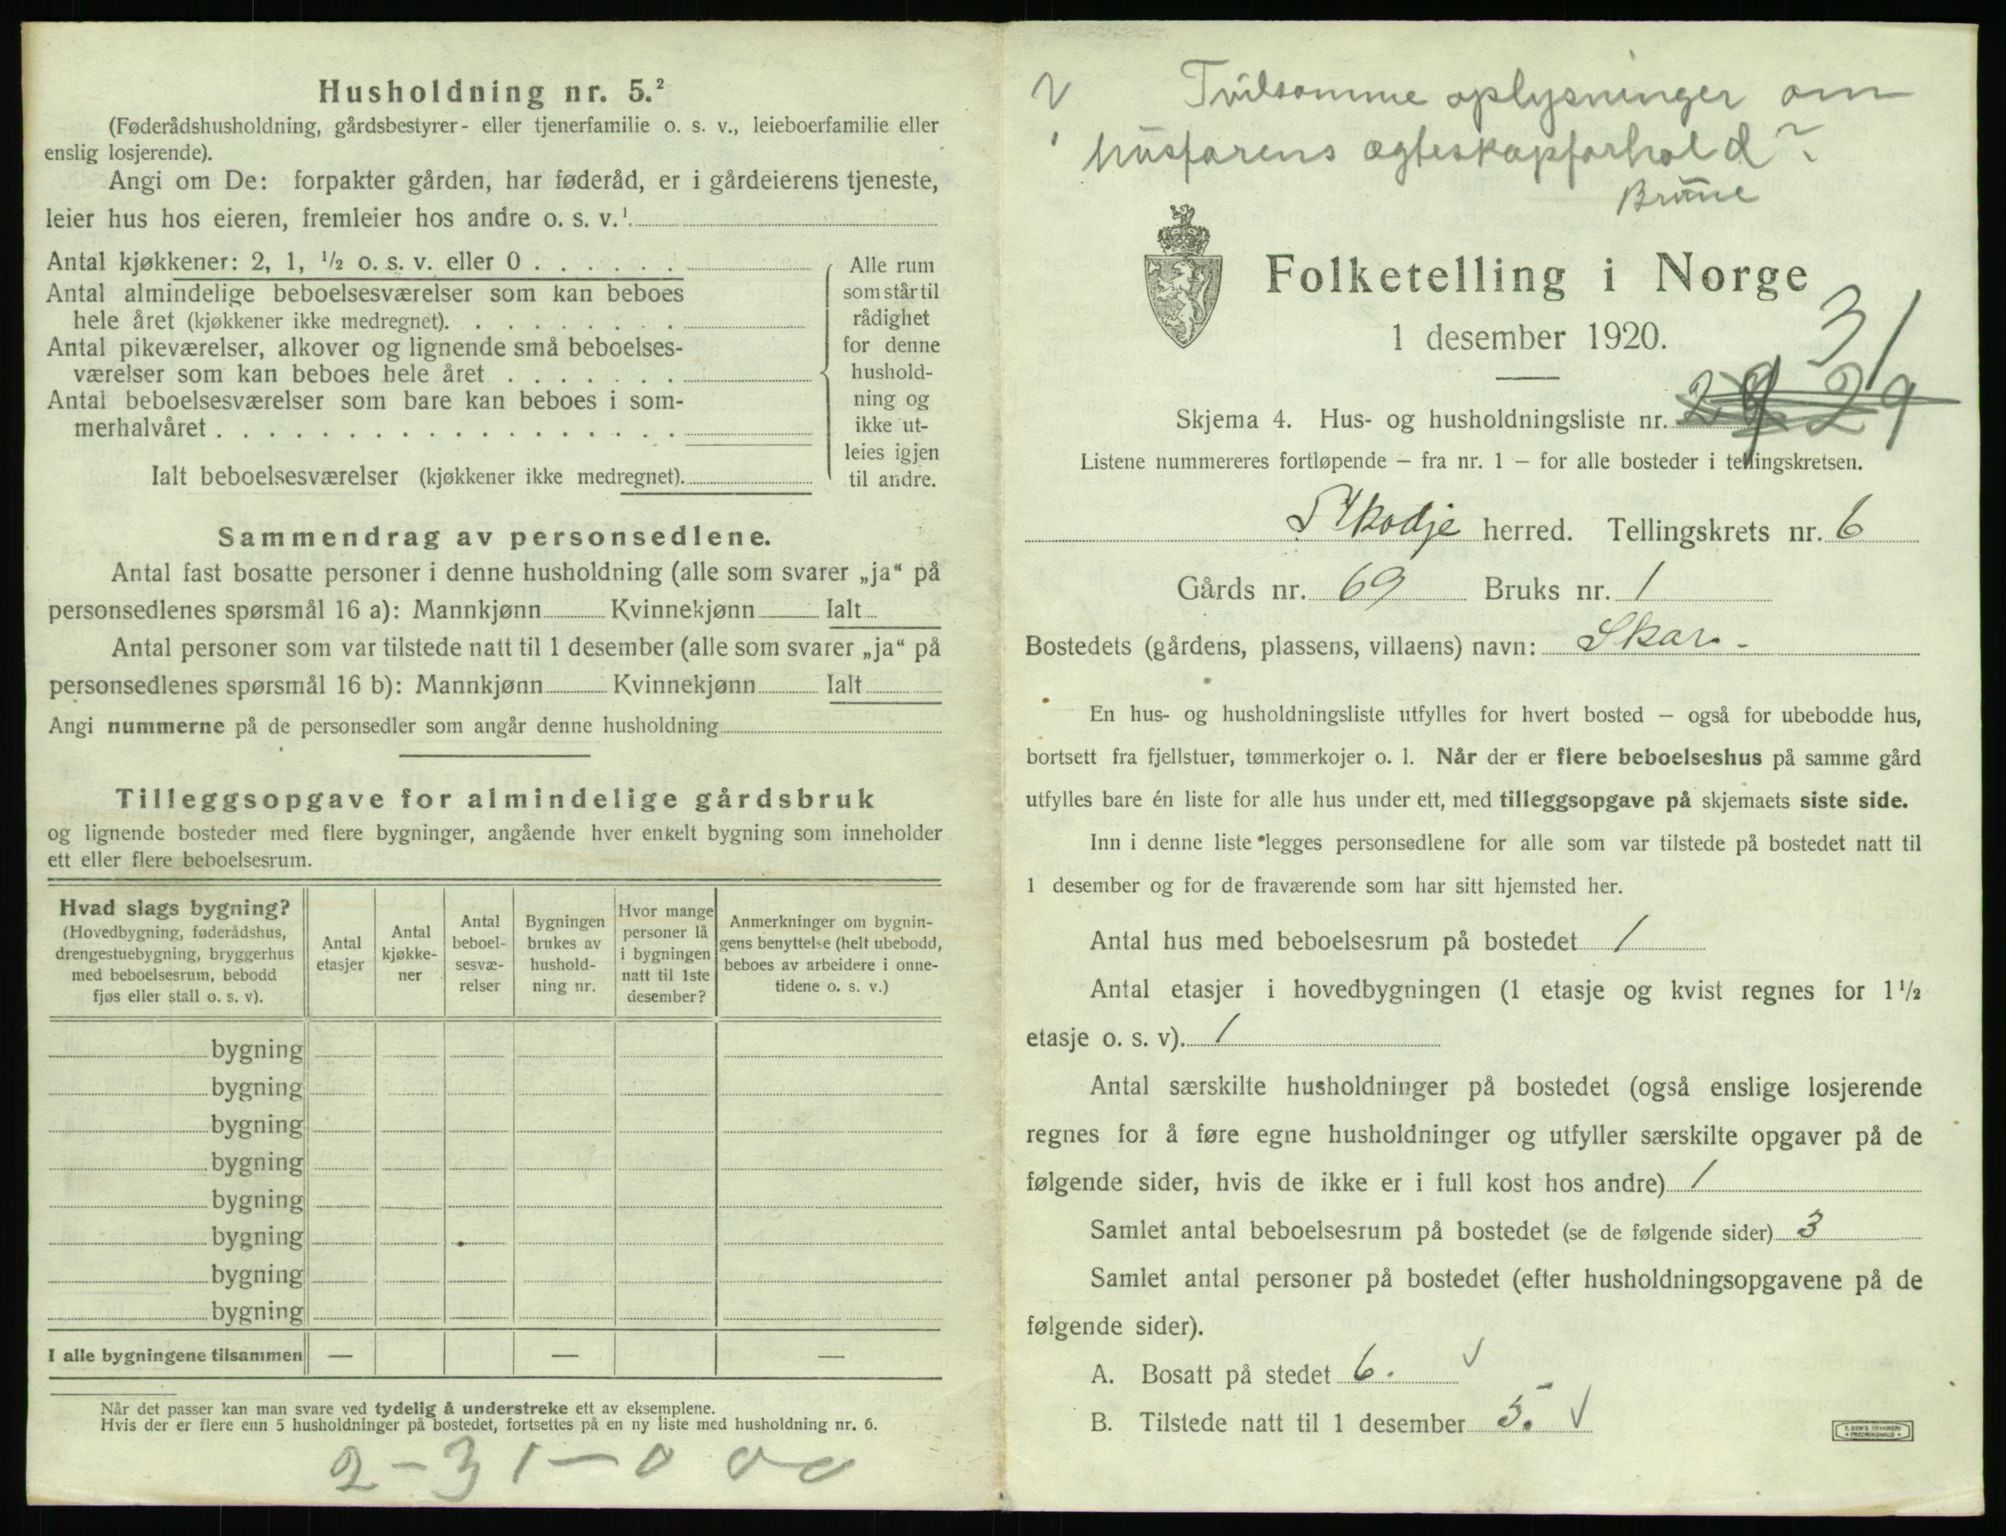 Husholdning nr. 5.²
(Føderådshusholdning, gårdsbestyrer- eller tjenerfamilie o. s. v., leieboerfamilie eller
enslig losjerende).
Angi om De: forpakter gården, har føderåd, er i gårdeierens tjeneste,
leier hus hos eieren, fremleier hos andre o. s. v.¹.
Antal kjøkkener: 2, 1, ½ o. s. v. eller 0 . . . . . .
Antal almindelige beboelsesværelser som kan beboes
hele året (kjøkkener ikke medregnet). . . . . . . . .
Antal pikeværelser, alkover og lignende små beboelses-
værelser som kan beboes hele året . . . . . . .
Antal beboelsesværelser som bare kan beboes i som-
merhalvåret . . . . . . . . . . . . . . . . . .
Ialt beboelsesværelser (kjøkkener ikke medregnet).
Alle rum
som står til
rådighet
for denne
hushold-
ning og
ikke ut-
leies igjen
til andre.
Sammendrag av personsedlene.
Antal fast bosatte personer i denne husholdning (alle som svarer „ja“ på
personsedlenes spørsmål 16 a): Mannkjønn Kvinnekjønn Ialt
Antal personer som var tilstede natt til 1 desember (alle som svarer „ja“ på
personsedlenes spørsmål 16 b): Mannkjønn Kvinnekjønn Ialt
Angi nummerne på de personsedler som angår denne husholdning
Tilleggsopgave for almindelige gårdsbruk
og lignende bosteder med flere bygninger, angående hver enkelt bygning som inneholder
ett eller flere beboelsesrum.
Hvad slags bygning?
(Hovedbygning, føderådshus,
drengestuebygning, bryggerhus
med beboelsesrum, bebodd
fjøs eller stall o. s. v).
Antal
etasjer
Antal
kjøkke-
ner
Antal
beboel-
sesvæ-
relser
Bygningen
brukes av
hushold-
ning nr.
Hvor mange
personer lå
i bygningen
natt til 1ste
desember?
Anmerkninger om bygnin-
gens benyttelse (helt ubebodd,
beboes av arbeidere i onne-
tidene o. s. v.)
bygning
bygning
bygning
bygning
bygning
bygning
bygning
bygning
I alle bygningene tilsammen — — —
Når det passer kan man svare ved tydelig å understreke ett av eksemplene.
Hvis der er flere enn 5 husholdninger på bostedet, fortsettes på en ny liste med husholdning nr. 6.
2 - 31 - 0 00
Tvilsomme oplysninger om
husfarens ægteskapforhold?
Brune
Folketelling i Norge
1 desember 1920.
31
Skjema 4. Hus- og husholdningsliste nr. 29
Listene nummereres fortløpende – fra nr. 1 – for alle bosteder i tellingskretsen.
Skodje herred. Tellingskrets nr. 6
Gårds nr. 69 Bruks nr. 1
Bostedets (gårdens, plassens, villaens) navn: Skar.
En hus- og husholdningsliste utfylles for hvert bosted – også for ubebodde hus,
bortsett fra fjellstuer, tømmerkojer o. l. Når der er flere beboelseshus på samme gård
utfylles bare én liste for alle hus under ett, med tilleggsopgave på skjemaets siste side.
Inn i denne liste legges personsedlene for alle som var tilstede på bostedet natt til
1 desember og for de fraværende som har sitt hjemsted her.
Antal hus med beboelsesrum på bostedet 1
Antal etasjer i hovedbygningen (1 etasje og kvist regnes for 1½
etasje o. s. v). 1
Antal særskilte husholdninger på bostedet (også enslige losjerende
regnes for å føre egne husholdninger og utfyller særskilte opgaver på de
følgende sider, hvis de ikke er i full kost hos andre) 1
Samlet antal beboelsesrum på bostedet (se de følgende sider) 3
Samlet antal personer på bostedet (efter husholdningsopgavene på de
følgende sider).
A. Bosatt på stedet 6.
B. Tilstede natt til 1 desember 5.